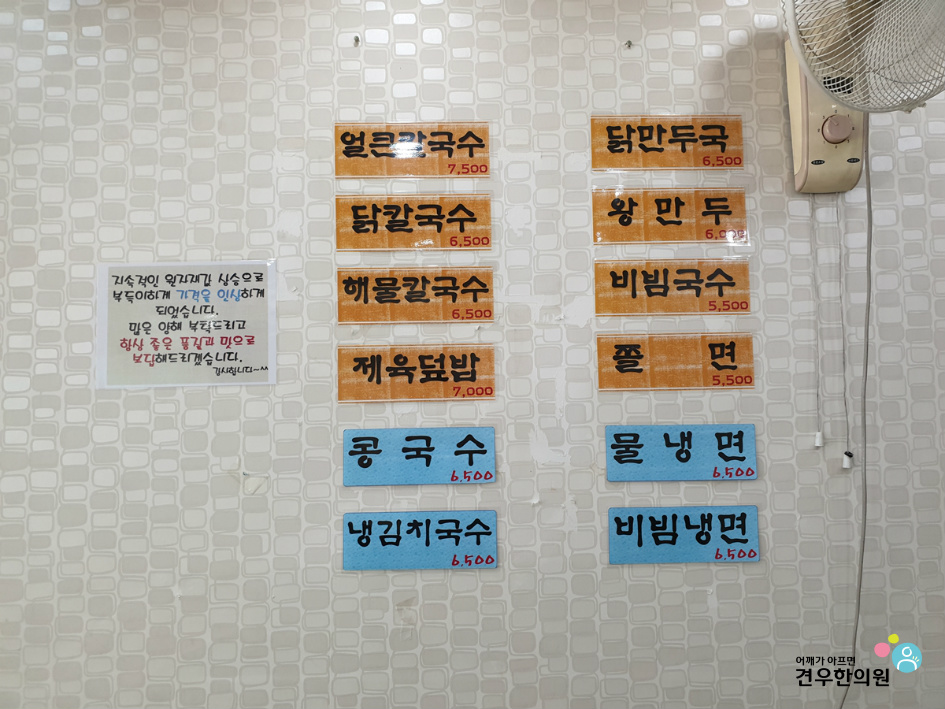 지속적인 원자재값 상승으로
부득이하게 가격을 인상하게
되었습니다.
많은 양해 부탁드리고
항상 좋은 품질과 맛으로
보답해드리겠습니다.
감사합니다~^^
얼큰칼국수
7,500
닭칼국수
6,500
해물칼국수
6,500
제육덮밥
7,000
콩국수
6,500
냉김치국수
6,500
닭만두국
6,500
왕만두
6,000
비빔국수
5,500
쫄면
5,500
물냉면
6,500
비빔냉면
6,500
어깨가 아프면
견우한의원